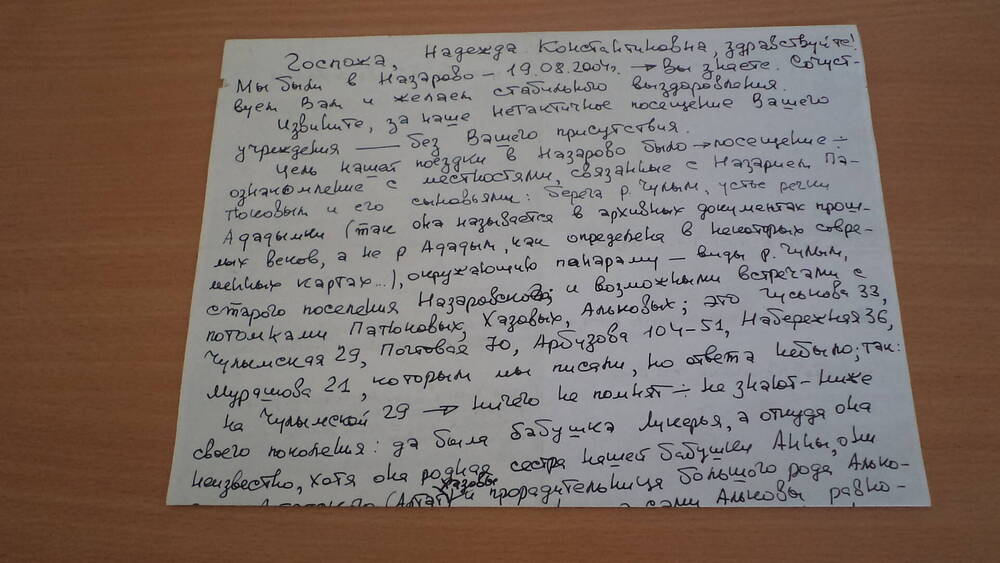 Госпожа, Надежда Константиновна, здравствуйте!
Мы были в Назарово – 19.08.2004г. → Вы знаете. Сочуст-
вуем Вам и желаем стабильного выздоравления.
Извините, за наше нетактичное посещение Вашего
учреждения — без Вашего присутствия.
Цель нашей поездки в Назарово было → посещение ÷
ознакомление с местностями, связанные с Назарием Па-
тюковым и его сыновьями: берега р. Чулым, устье речки
Ададымки (так она называется в архивных документах прош-
лых веков, а не р Ададым, как определена в некоторых совре-
менных картах...), окружающую панараму — виды р. Чулым,
старого поселения Назаровского; и возможными встречами с
потомками Патюковых, Хазовых, Альковых; это Гуськова 33,
Чулымская 29, Почтовая 70, Арбузова 104-51, Набережная 36,
Мурашова 21, которым мы писали, но ответа небыло; так:
на Чулымской 29 → ничего не помнят ÷ не знают-ниже
своего поколения: да была бабушка Лукерья, а откуда она
неизвестно, хотя она родная сестра нашей бабушки Анны, они
Хазовы
(Алтат) и прорадительница большого рода Алько-
сами Альковы равно-